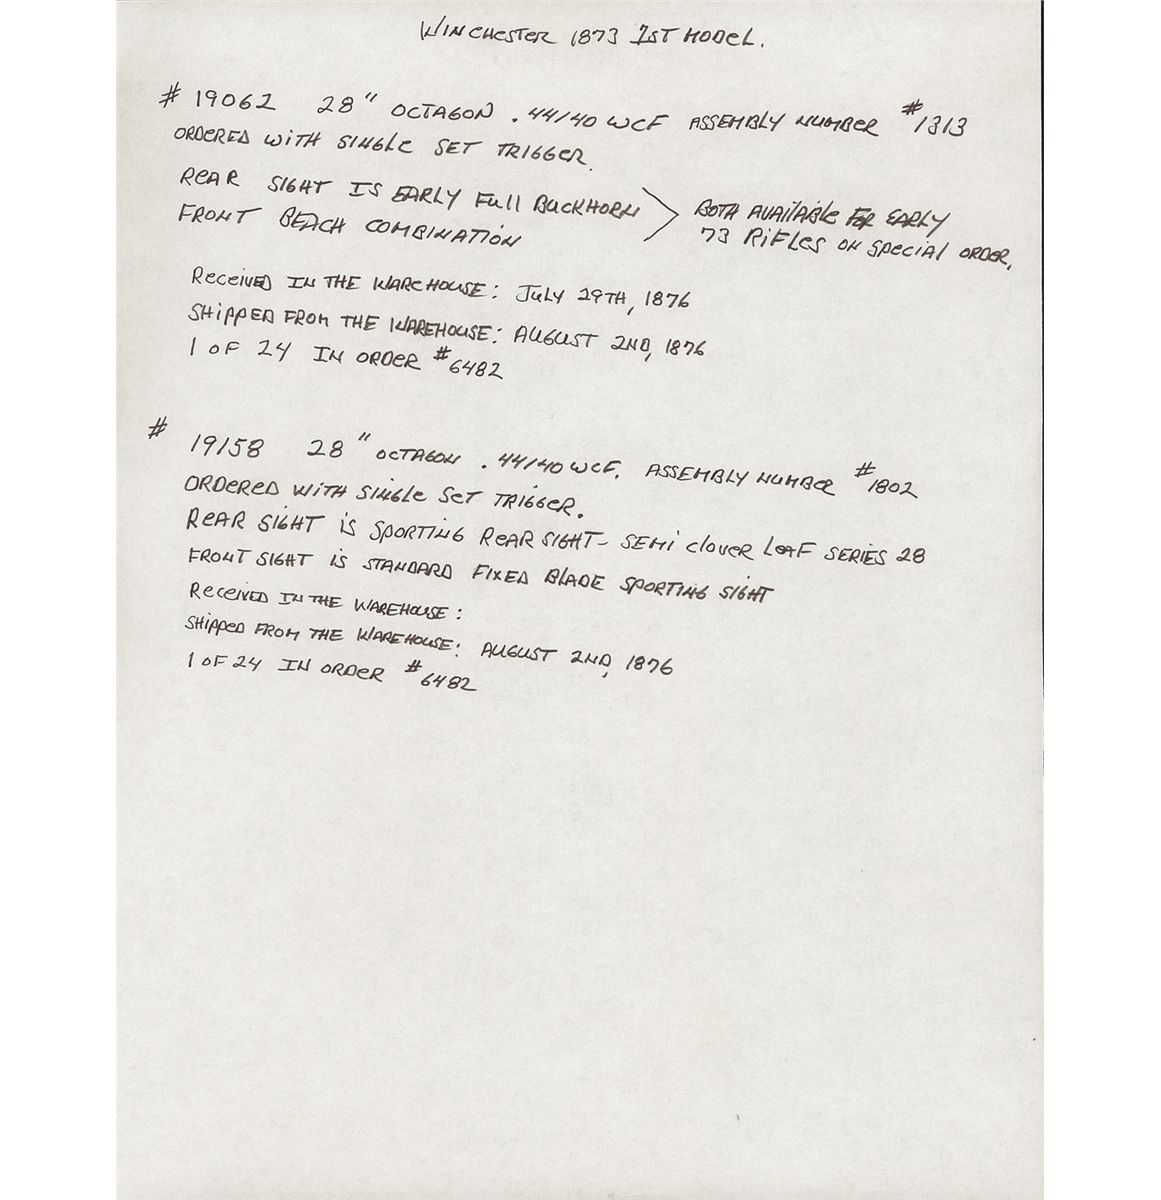 WINCHESTER 1873 1ST MODEL.
# 19062 28" OCTAGON .44/40 WCF ASSEMBLY NUMBER #1313
ORDERED WITH SINGLE SET TRIGGER.
REAR SIGHT IS EARLY FULL BUCKHORN
FRONT BEACH COMBINATION
BOTH AVAILABLE FOR EARLY
73 RIFLES ON SPECIAL ORDER.
RECEIVED IN THE WAREHOUSE: JULY 29TH, 1876
SHIPPED FROM THE WAREHOUSE: AUGUST 2ND, 1876
1 OF 24 IN ORDER #6482
# 19158 28" OCTAGON .44/40 WCF. ASSEMBLY NUMBER #1802
ORDERED WITH SINGLE SET TRIGGER.
REAR SIGHT IS SPORTING REAR SIGHT- SEMI CLOVER LEAF SERIES 28
FRONT SIGHT IS STANDARD FIXED BLADE SPORTING SIGHT
RECEIVED IN THE WAREHOUSE:
SHIPPED FROM THE WAREHOUSE: AUGUST 2ND, 1876
1 OF 24 IN ORDER #6482